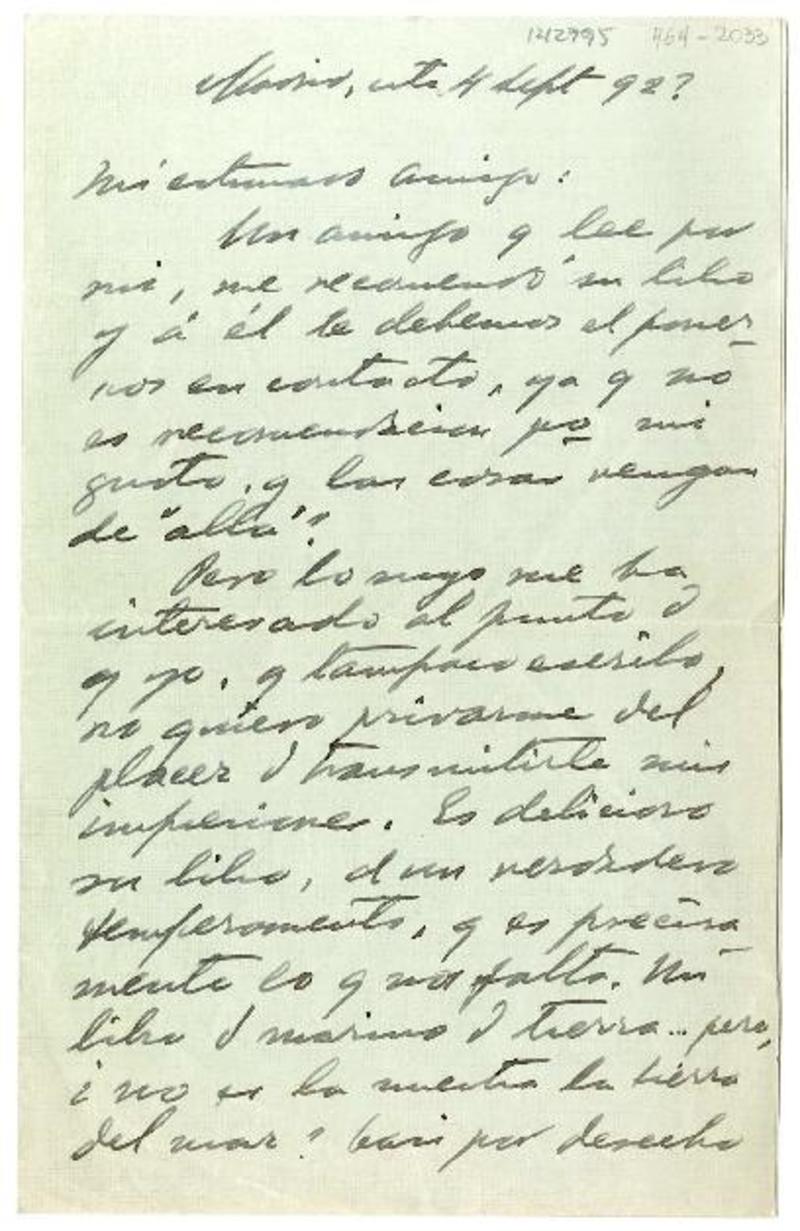 142995 464-2033
Madrid, 4 Sept 927
Mi estimado amigo:
Un amigo q lee por
mi, me recomendó su libro
y á él le debemos el poner-
nos en contacto, ya q no
es recomendacion pa mi
gusto, q las cosas vengan
de "allá".
Pero lo suyo me ha
interesado al punto d
q yo, q tampoco escribo,
no quiero privarme del
placer d transmitirle mis
impresiones. Es delicioso
su libro, d un verdadero
temperamento, q es precisa
mente lo q nos falta. Un
libro d marino d tierra... pero,
¿no es la nuestra la tierra
del mar? Casi por derecho